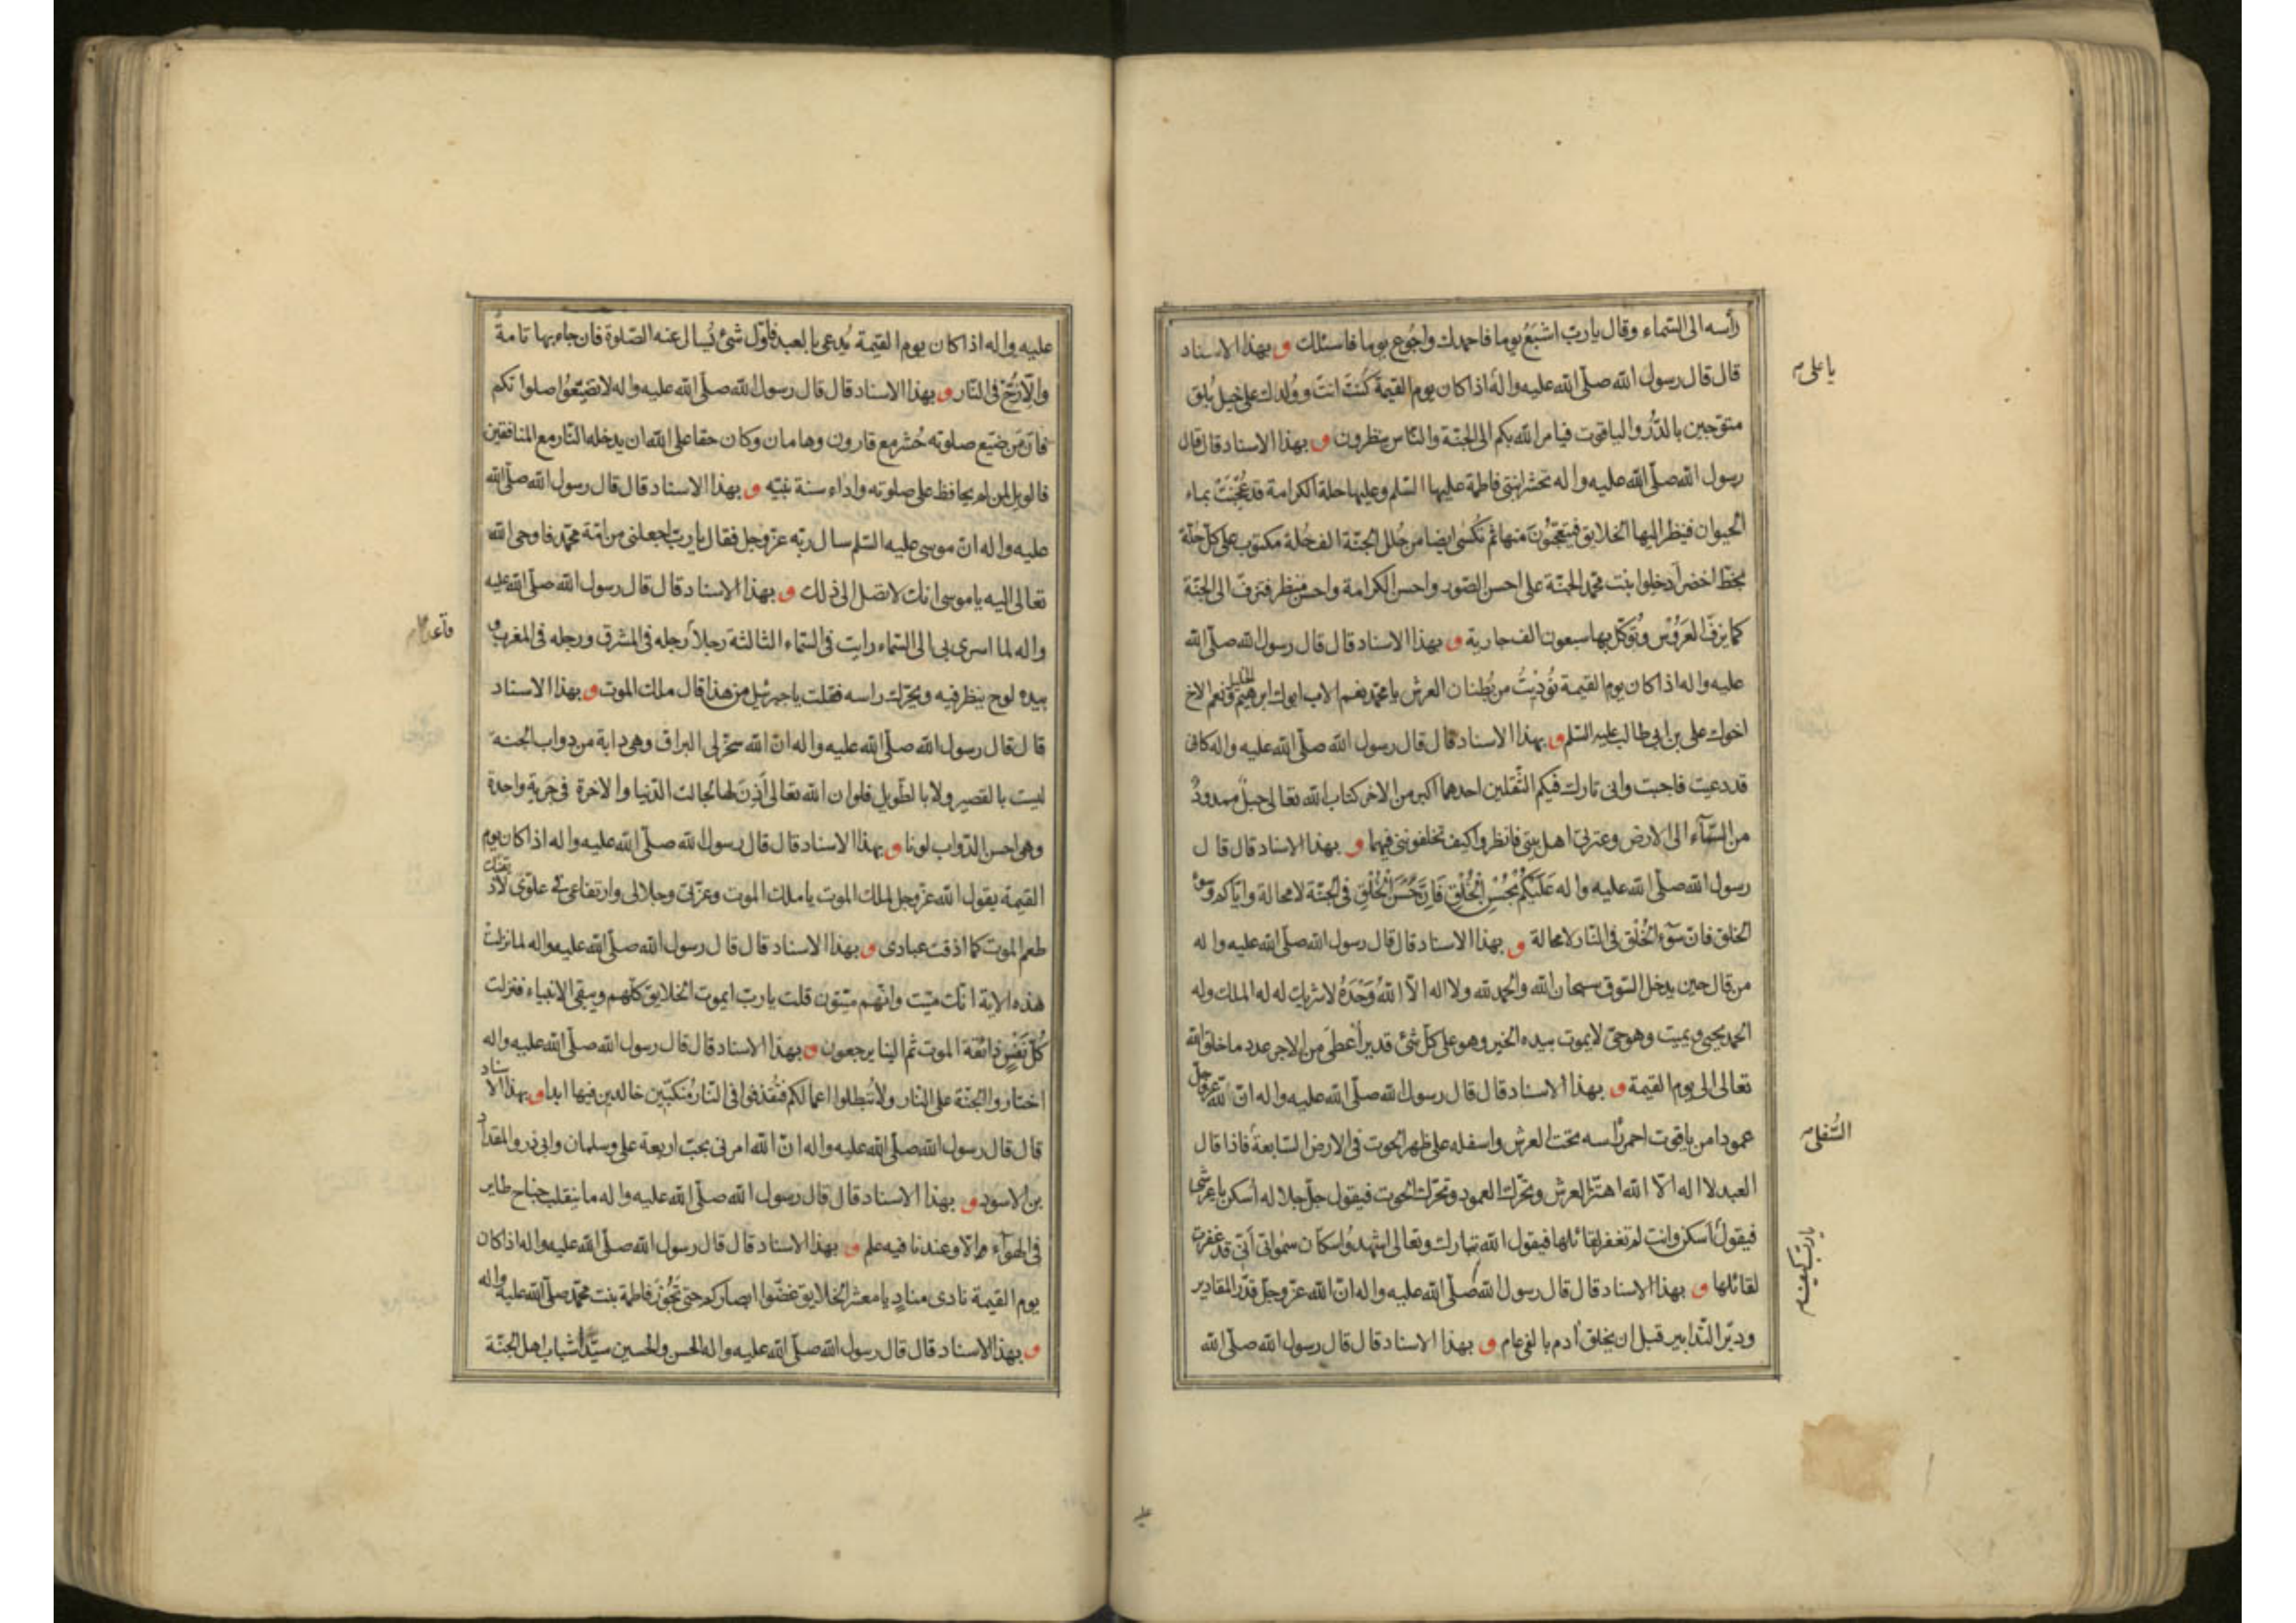 رأسه الى السّماء وقال يا ربّ اشبَعُ يوما فاحمدك واجُوع يوما فاسئلك و بهذا الاسناد
قال قال رسول الله صلّى الله عليه واله اذا كان يوم القيمة كنتَ انتَ ووُلدك على خيل بُلق
يا على
متوّجين بالدُّرّ والياقوت فيامر الله بكم الى الجنّة والنّاس ينظرون و بهذا الاسناد قال قال
رسول الله صلّى الله عليه واله تحشر ابنتى فاطمة عليها السّلم وعليها حلة الكرامة قد عُجِنَتْ بماء
الحيوان فينظر اليها الخلايق فيتعجّبُونَ منها ثم تُكسٰى ايضا من حُلل الجنّة الف حُلة مكتوب على كلّ حُلّة
بخطّ اخضر اَدخِلوا بنت محمّد الجنّة على احسن الصّور واحسن الكرامة واحسن منظر فتزفّ الى الجنّة
كما يزفّ العَرُوس ويُوَكّل بها سبعون الف جارية و بهذا الاسناد قال قال رسول الله صلّى الله
عليه واله اذا كان يوم القيمة نُودِيْتُ من بُطنان العرش يا محمّد نعم الاب ابوك ابرهيم الخليل ونعم الاخ
اخوك على بن ابى طالب عليه السّلم و بهذا الاسناد قال قال رسول الله صلّى الله عليه واله كانى
قد دعيت فاجبت وانى تارك فيكم الثّقلين احدهما اكبر من الاخر كتاب الله تعالى حبلٌ ممدودٌ
من السّمآء الى الارض وعترتى اهل بيتى فانظروا كيف تخلفوننى فيهما و بهذا الاسناد قال قال
رسول الله صلّى الله عليه واله عَلَيْكُمْ بحُسْنِ الْخُلْقِ فَاِنَّ حُسْنَ الْخُلْقِ فى الجنّة لا محالة وايّاكم وسوءَ
الخلق فانّ سوٓء الخُلْق فى النّار لا محالة و بهذا الاسناد قال قال رسول الله صلّى الله عليه واله
من قال حين يدخل السّوق سبحان الله والحمد لله ولا اله الّا اللهُ وَحْدَهُ لا شريك له له الملك وله
الحمد يحيى ويميت وهو حىّ لا يموت بيده الخير وهو على كلّ شئ قدير اُعطى من الاجر عدد ما خلق الله
تعالى الى يوم القيمة و بهذا الاسناد قال قال رسول الله صلّى الله عليه واله انّ لله عزّ وجلّ
عمودا من ياقوت احمر رأسه تحت العرش واسفله على ظهر الحوت فى الارض السّابعة فاذا قال
السُّفلى
العبد لا اله الّا الله اهتزّ العرش وتحرّك العمود وتحرّك الحوت فيقول جلّ جلاله اُسكن يا عرشى
فيقول اَسكن وانت لم تغفر لقائلها فيقول الله تبارك وتعالى اشهدوا سكّان سمٰواتى اَنّى قد غفرت
يا ربّ كيف
لقائلها و بهذا الاسناد قال قال رسول الله صلّى الله عليه واله انّ الله عزّ وجلّ قدّر المقادير
ودبّر التّدابير قبل ان يخلق اٰدم بالفى عام و بهذا الاسناد قال قال رسول الله صلّى الله
عليه واله اذا كان يوم القيمة يُدعى بالعبد فاَوّل شئ يُسال عنه الصّلوة فان جاء بها تامةً
والّا زُخّ فى النّار و بهذا الاسناد قال قال رسول الله صلّى الله عليه واله لا تضيّعُوا صلواتكم
فانّ مَن ضيّع صلوته حُشر مع قارون وهامان وكان حقا على الله ان يدخله النّار مع المنافقين
فالويل لمن لم يحافظ على صلوته واداء سنة نبيّه و بهذا الاسناد قال قال رسول الله صلّى الله
عليه واله انّ موسى عليه السّلم سال ربّه عزّ وجلّ فقال يا ربّ اجعلنى من امّة محمّد فاوحى الله
تعالى اليه يا موسى انك لا تصل الى ذلك و بهذا الاسناد قال قال رسول الله صلّى الله عليه
واله لما اسرى بى الى السّماء رايت فى السّماء الثالثة رجلاً رجله فى المشرق ورجله فى المغرب و
بيده لوح ينظر فيه ويحرّك راسه فقلت يا جبرئيل من هذا قال ملك الموت و بهذا الاسناد
قال قال رسول الله صلّى الله عليه واله انّ الله سخّر لى البراق وهى دابة من دواب الجنه
ليست بالقصير ولا بالطّويل فلو ان الله تعالى اَذِنَ لها لجالت الدّنيا والاخرة فى جَرية واحدة
وهى احسن الدّواب لونا و بهذا الاسناد قال قال رسول الله صلّى الله عليه واله اذا كان يوم
القيمة يقول الله عزّ وجلّ لملك الموت يا ملك الموت وعزّتى وجلالى وارتفاعى فى علوّى لاذيقنّك
طعم الموت كما اذقت عبادى و بهذا الاسناد قال قال رسول الله صلّى الله عليه واله لما نزلت
هذه الاية انّك ميّت وانّهم ميّتون قلت يا ربّ ايموت الخلايق كلّهم ويبقى الانبياء فنزلت
كُلّ نَفْسٍ ذائقة الموت ثم الينا يرجعون و بهذا الاسناد قال قال رسول الله صلّى الله عليه واله
اختاروا الجنّة على النّار ولا تُبطلوا اعمالكم فتُقذفوا فى النّار مُنكبّين خالدين فيها ابدا و بهذا الاسناد
قال قال رسول الله صلّى الله عليه واله انّ الله امرنى بحبّ اربعة على وسلمان وابى ذر والمقداد
بن الاسود و بهذا الاسناد قال قال رسول الله صلّى الله عليه واله ما ينقلب جناح طاير
فى الهوآء والّا وعندنا فيه علم و بهذا الاسناد قال قال رسول الله صلّى الله عليه واله اذا كان
يوم القيمة نادى منادٍ يا معشر الخلايق غضّوا ابصاركم حتى تَجُوْزَ فاطمة بنت محمّد صلّى الله عليه واله
و بهذا الاسناد قال قال رسول الله صلّى الله عليه واله الحسن والحسين سيّدا شباب اهل الجنّة